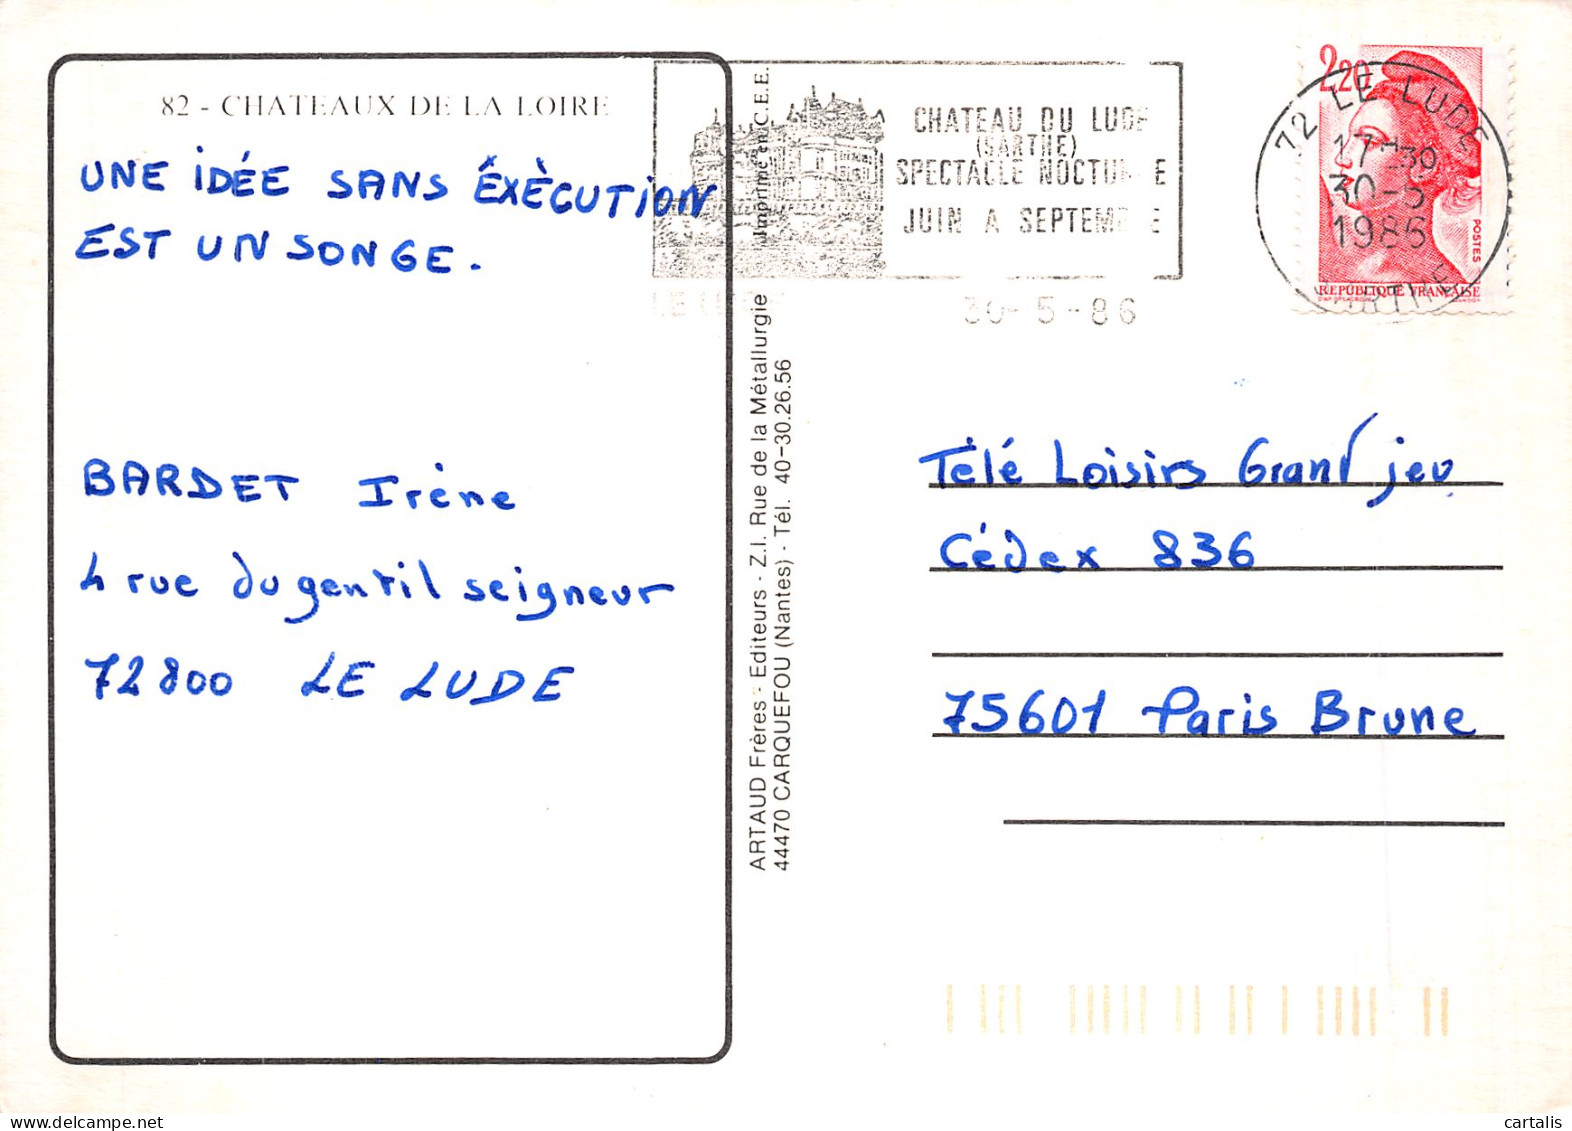 82 - CHATEAUX DE LA LOIRE
UNE IDÉE SANS ÊXÈCUTION
EST UN SONGE.
BARDET Irène
4 rue du gentil seigneur
72800 LE LUDE
Imprimé en C.E.E.
ARTAUD Frères - Editeurs - Z.I. Rue de la Métallurgie
44470 CARQUEFOU (Nantes) - Tél. 40-30.26.56
CHATEAU DU LUDE
(SARTHE)
SPECTACLE NOCTURNE
JUIN A SEPTEMBRE
LE LUDE 30-5-86
2,20
POSTES
REPUBLIQUE FRANÇAISE
72 LE LUDE
17 H 30
30-5
1986
SARTHE
Télé Loisirs Grand jeu
Cédex 836
75601 Paris Brune
cartalis